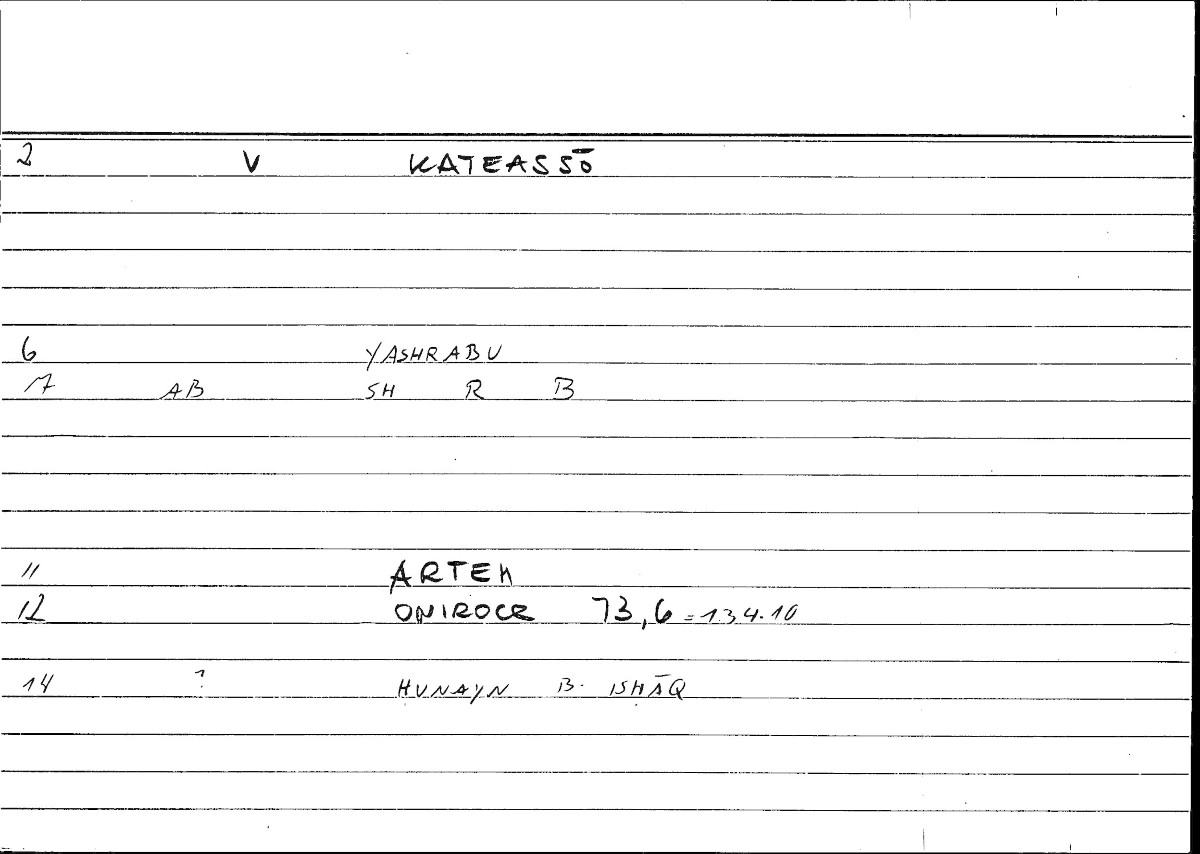 2 V KATEASSŌ
6 YASHRABU
7 AB SH R B
11 ARTEM
12 ONIROCR 73,6 = 134.10
14 ? ḤUNAYN B. ISḤĀQ